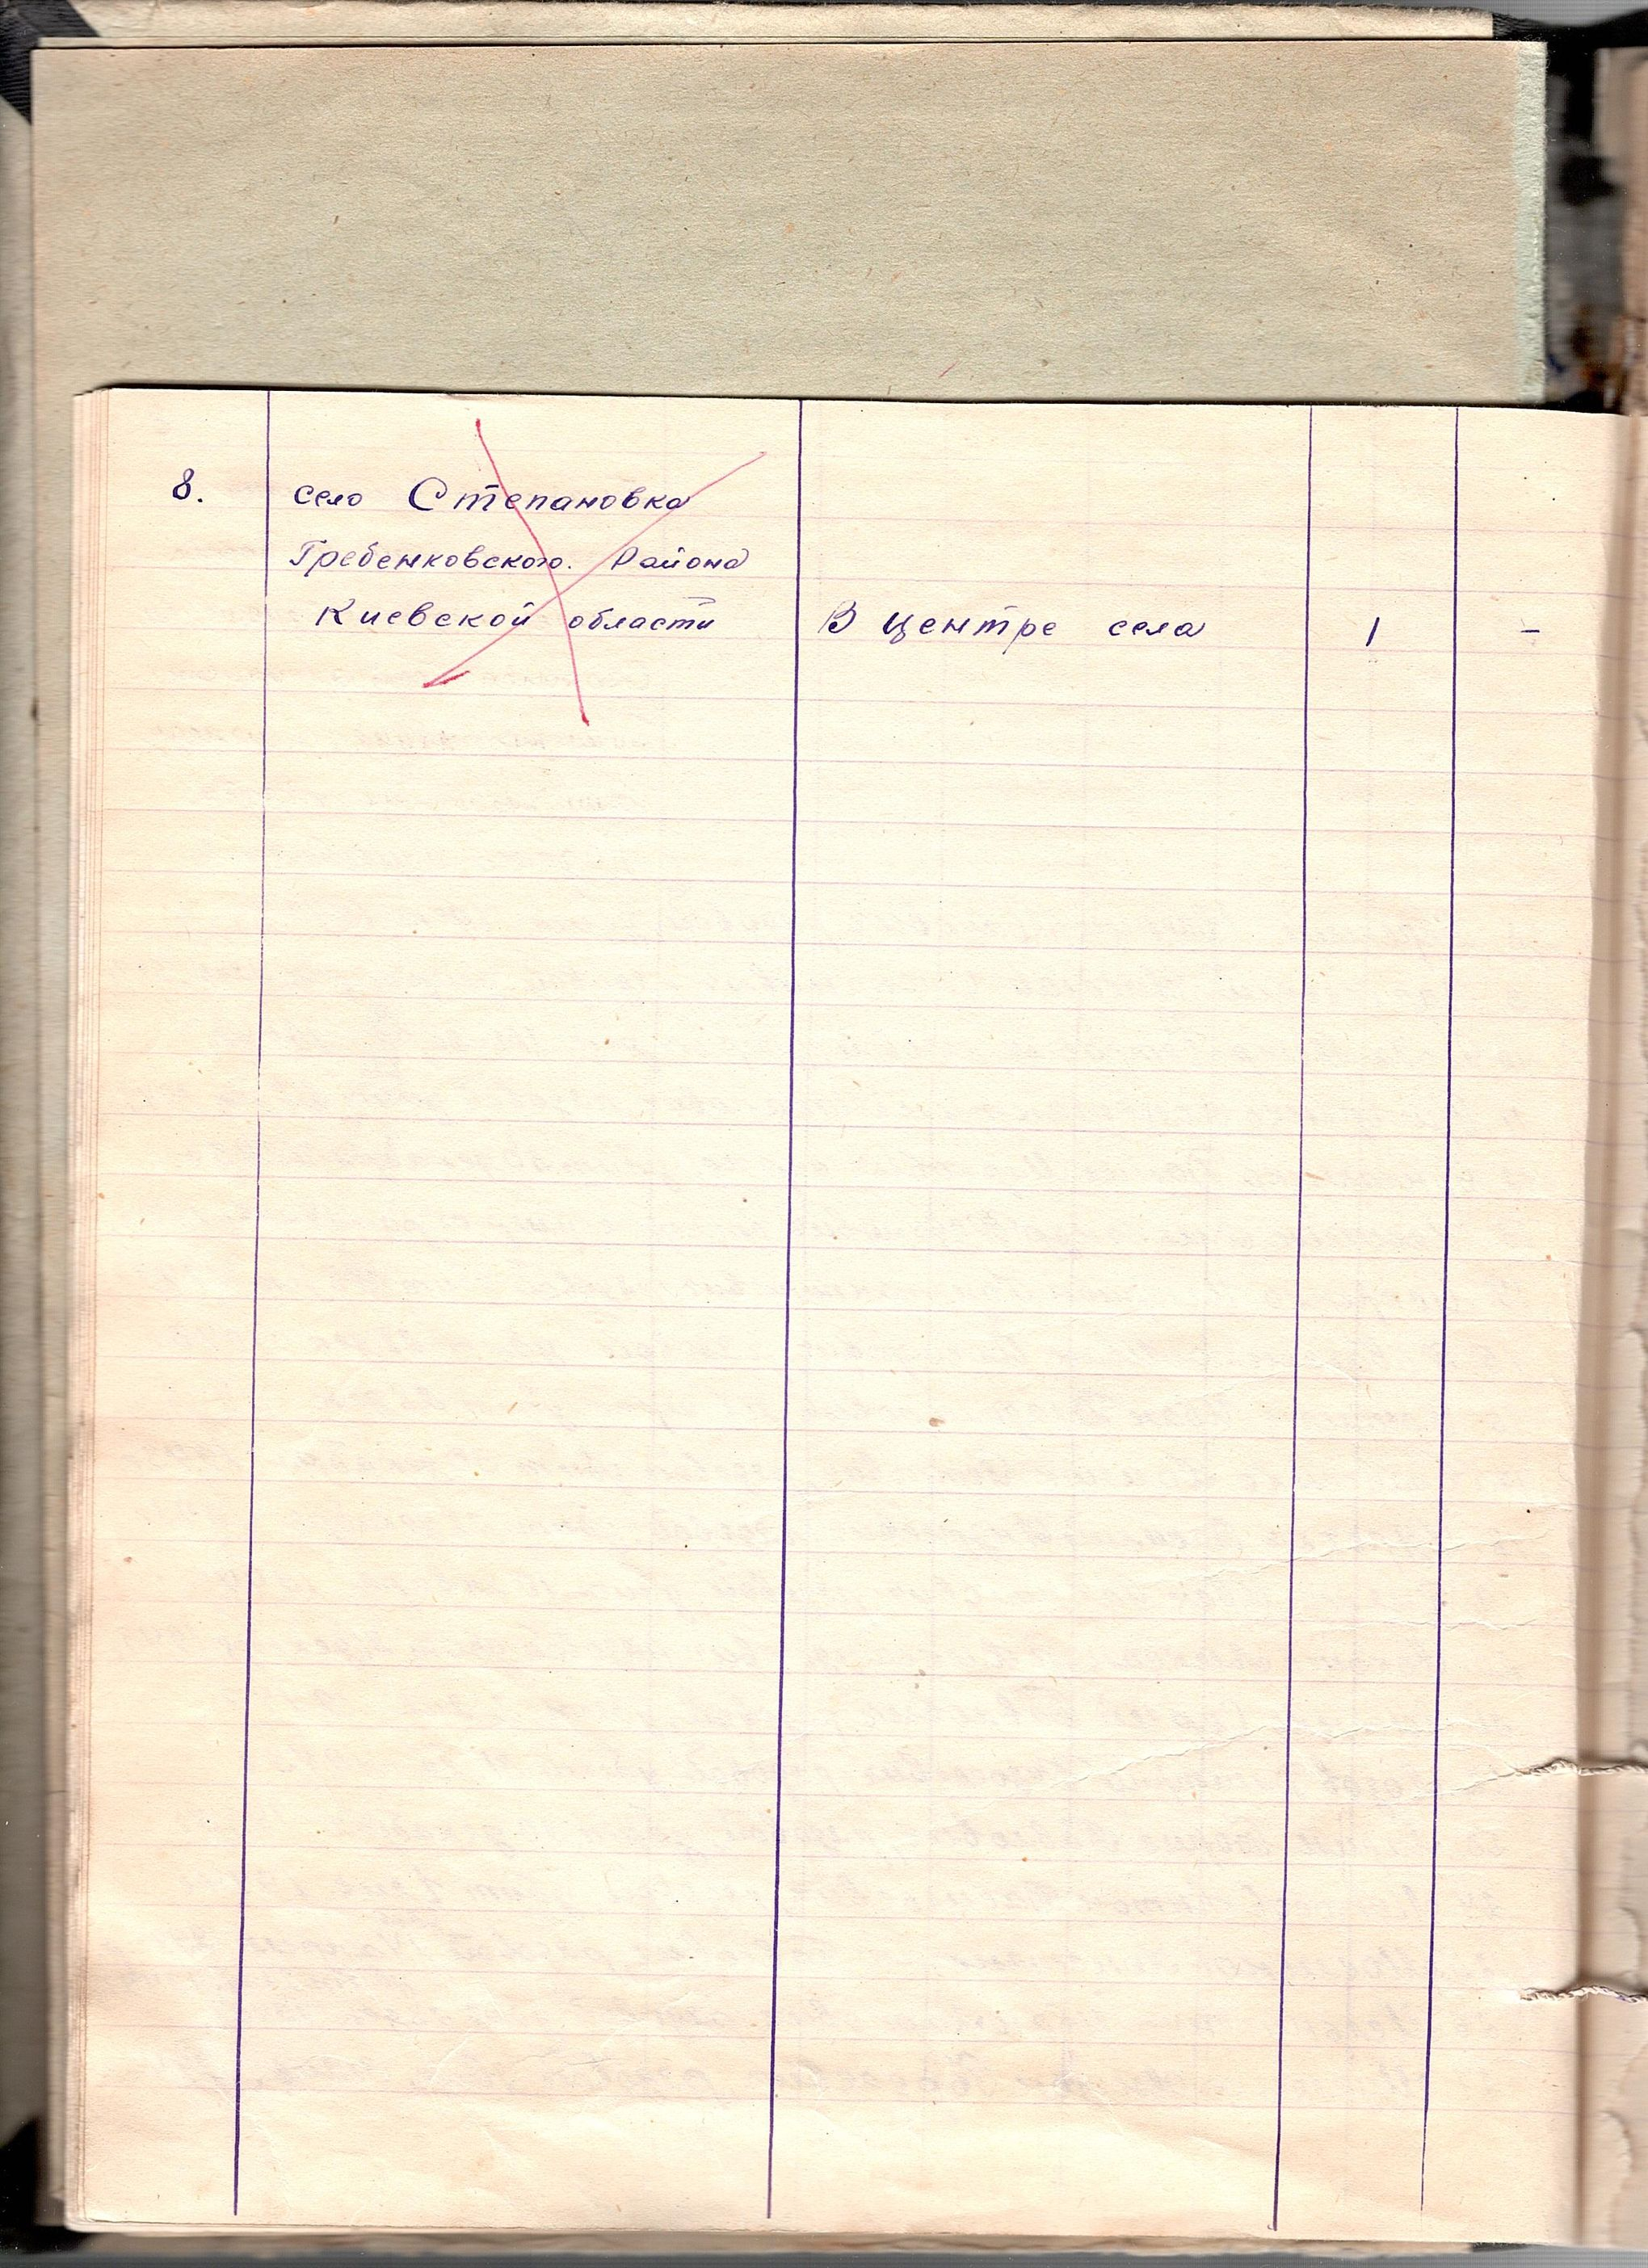 8. село Степановка
Гребенковского. Района
Киевской области В центре села 1 -